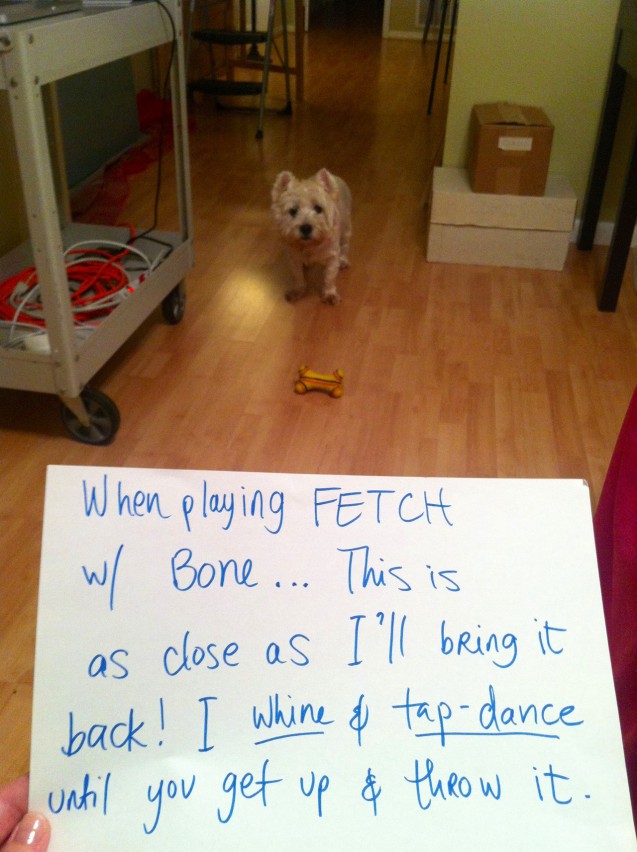 When playing FETCH
w/ Bone... This is
as close as I'll bring it
back! I whine & tap-dance
until you get up & throw it.